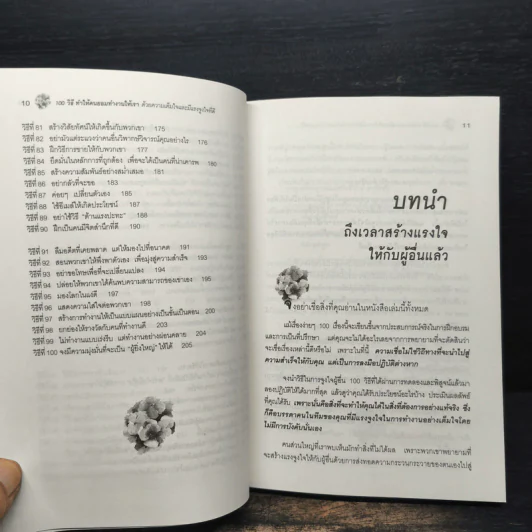 10 100 วิธี ทำให้คนยอมทำงานให้เรา ด้วยความเต็มใจและมีแรงจูงใจที่ดี
วิธีที่ 81 สร้างวิสัยทัศน์ให้เกิดขึ้นกับพวกเขา 175
วิธีที่ 82 อย่ามัวแต่ระแวงว่าคนอื่นวิพากษ์วิจารณ์คุณอย่างไร 176
วิธีที่ 83 ฝึกวิธีการขายให้กับพวกเขา 177
วิธีที่ 84 ยึดมั่นในหลักการที่ถูกต้อง เพื่อจะได้เป็นคนที่น่าเคารพ 180
วิธีที่ 85 สร้างความสัมพันธ์อย่างสม่ำเสมอ 181
วิธีที่ 86 อย่ากลัวที่จะขอ 183
วิธีที่ 87 ค่อยๆ เปลี่ยนตัวเอง 185
วิธีที่ 88 ใช้อีเมล์ให้เกิดประโยชน์ 185
วิธีที่ 89 อย่าใช้วิธี "ต้านแรงปะทะ" 188
วิธีที่ 90 ฝึกเป็นคนมีจิตสำนึกที่ดี 187
วิธีที่ 91 ลืมอดีตที่เคยพลาด แต่ให้มองไปที่อนาคต
วิธีที่ 92 สอนพวกเขาให้พึ่งพาตัวเอง เพื่อมุ่งสู่ความสำเร็จ
วิธีที่ 93 อย่าขอโทษเพื่อที่จะเปลี่ยนแปลง 194
วิธีที่ 94 ปล่อยให้พวกเขาได้ค้นพบความสามารถของเขาเอง
วิธีที่ 95 มองโลกในแง่ดี 197
วิธีที่ 96 แสดงความใส่ใจต่อพวกเขา
วิธีที่ 97 สร้างการทำงานให้เป็นแบบแผนอย่างเป็นขั้นเป็นตอน 200
วิธีที่ 98 ยกย่องให้รางวัลกับคนที่ทำงานดี
วิธีที่ 99 ไม่ทำงานแบบเร่งรีบ แต่ทำงานอย่างผ่อนคลาย
วิธีที่ 100 จงมีความมุ่งมั่นที่จะเป็น "ผู้ยิ่งใหญ่" ให้ได้ 205
11
บทนำ
ถึงเวลาสร้างแรงใจ
ให้กับผู้อื่นแล้ว
จงอย่าเชื่อสิ่งที่คุณอ่านในหนังสือเล่มนี้ทั้งหมด
แม้เรื่องง่ายๆ 100 เรื่องนี้จะเขียนขึ้นจากประสบการณ์จริงในการฝึกอบรม
และการเป็นที่ปรึกษา แต่คุณจะไม่ได้อะไรเลยจากการพยายามที่จะตัดสินว่า
จะเชื่อเรื่องเหล่านี้ดีหรือไม่ เพราะในที่นี้ ความเชื่อไม่ใช่วิธีทางที่จะนำไปสู่
ความสำเร็จให้กับคุณ แต่เป็นการลงมือปฏิบัติต่างหาก
จงนำวิธีในการจูงใจผู้อื่น 100 วิธีที่ได้ผ่านการทดลองและพิสูจน์แล้วมา
ลองปฏิบัติให้ได้มากที่สุด แล้วดูว่าคุณได้รับประโยชน์อะไรบ้าง ประเมินผลลัพธ์
ที่คุณได้รับ เพราะนั่นคือสิ่งที่จะทำให้คุณได้ในสิ่งที่ต้องการอย่างแท้จริง ซึ่ง
ก็คือบรรดาคนในทีมของคุณที่มีแรงจูงใจในการทำงานอย่างเต็มใจโดย
ไม่มีการบังคับนั่นเอง
คนส่วนใหญ่ที่เราพบเห็นมักทำสิ่งที่ไม่ได้ผล เพราะพวกเขาพยายามที่
จะสร้างแรงจูงใจ ให้กับผู้อื่นด้วยการส่งทอดความกระวนกระวายของคนเองไปสู่